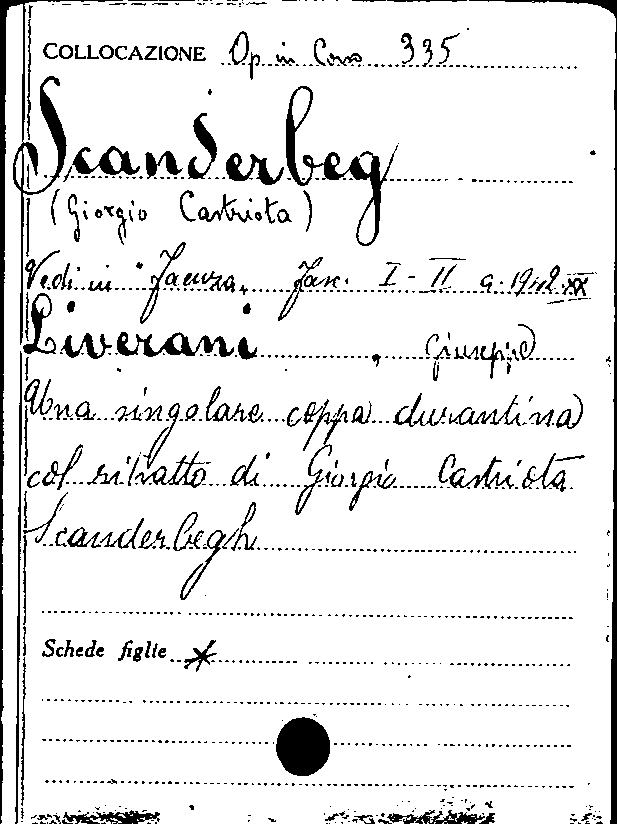 COLLOCAZIONE Op in Corso 335
Scanderbeg
(Giorgio Castriota)
Vedi in "Faenza" Fasc. I-II a. 1942 XX
Liverani, Giuseppe
Una singolare coppa durantina
col ritratto di Giorgio Castriota
Scanderbegh
Schede figlie *